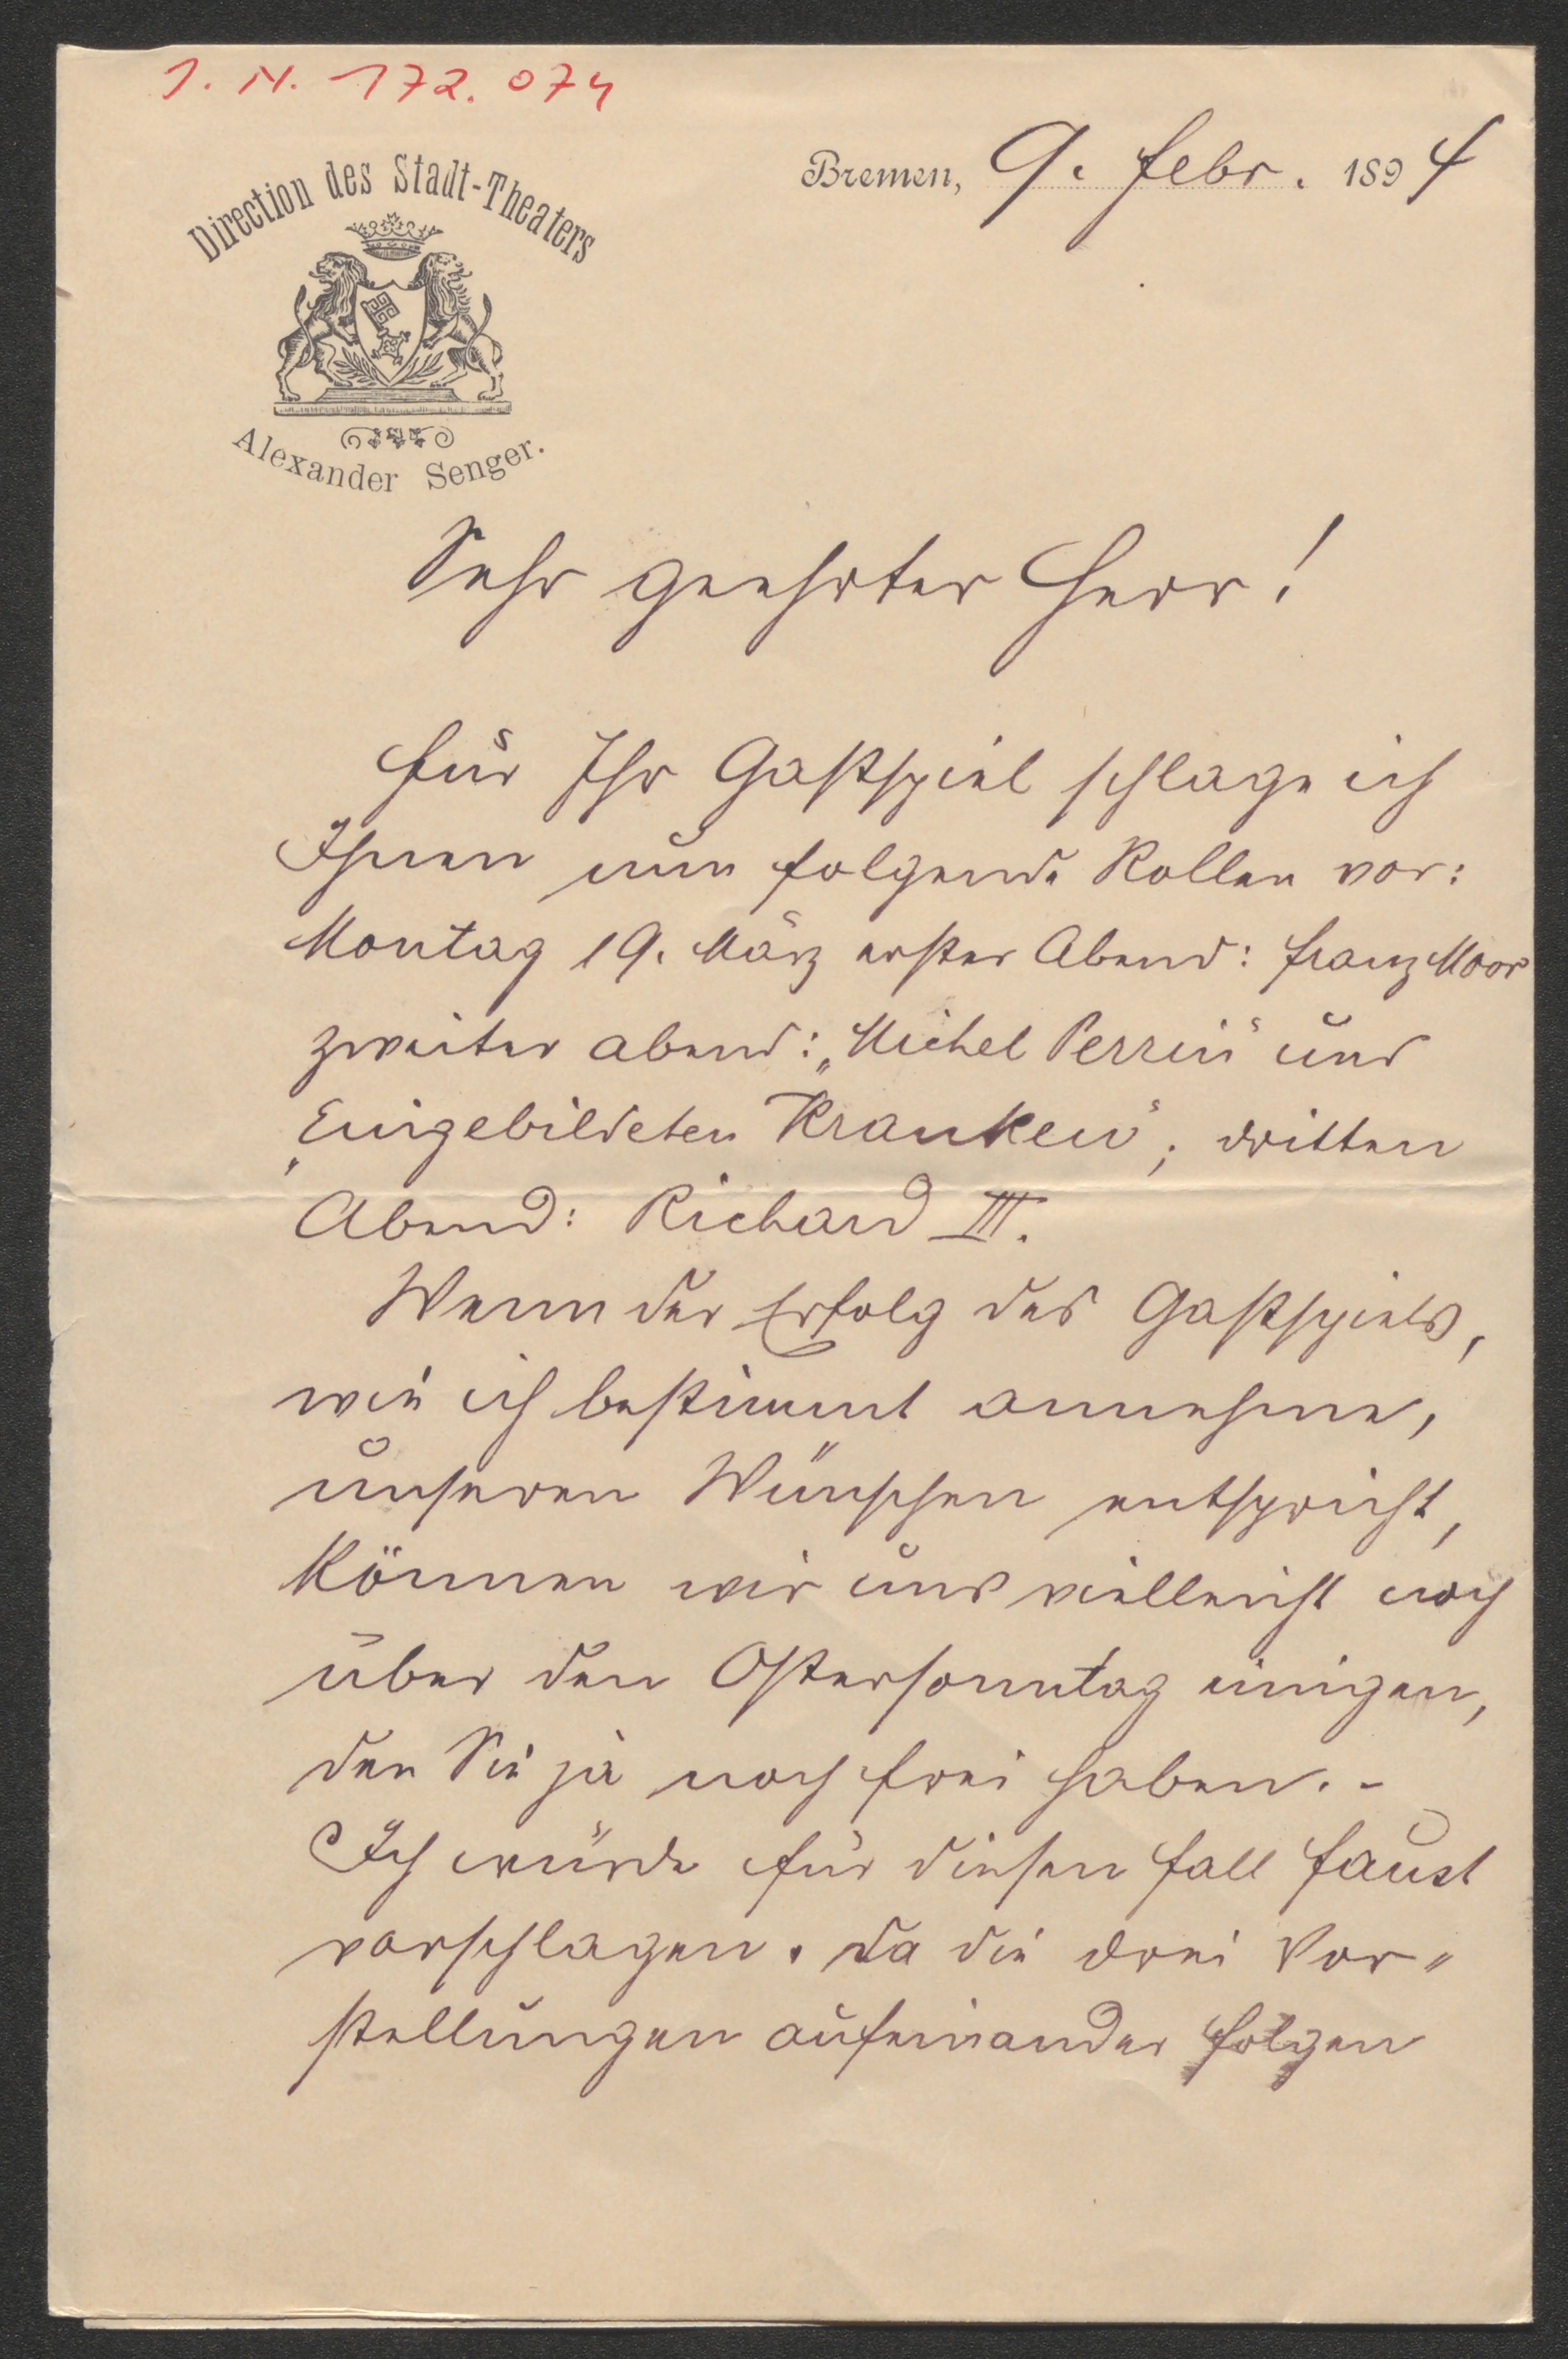 J. N. 172.074
Direction des Stadt-Theaters
Alexander Senger.
Bremen, 9. Febr. 1894
Sehr geehrter Herr!
Für Ihr Gastspiel schlage ich
Ihnen nun folgende Rollen vor:
Montag 19. März erster Abend: Franz Moor
zweiter Abend: „Michel Perrin“ und
„Eingebildeten Kranken“; dritten
Abend: Richard III.
Wenn der Erfolg des Gastspiels,
wie ich bestimmt annehme,
unseren Wünschen entspricht,
können wir uns vielleicht noch
über den Ostersonntag einigen,
den Sie ja noch frei haben. -
Ich würde für diesen Fall Faust
vorschlagen. Da die drei Vor-
stellungen aufeinander folgen